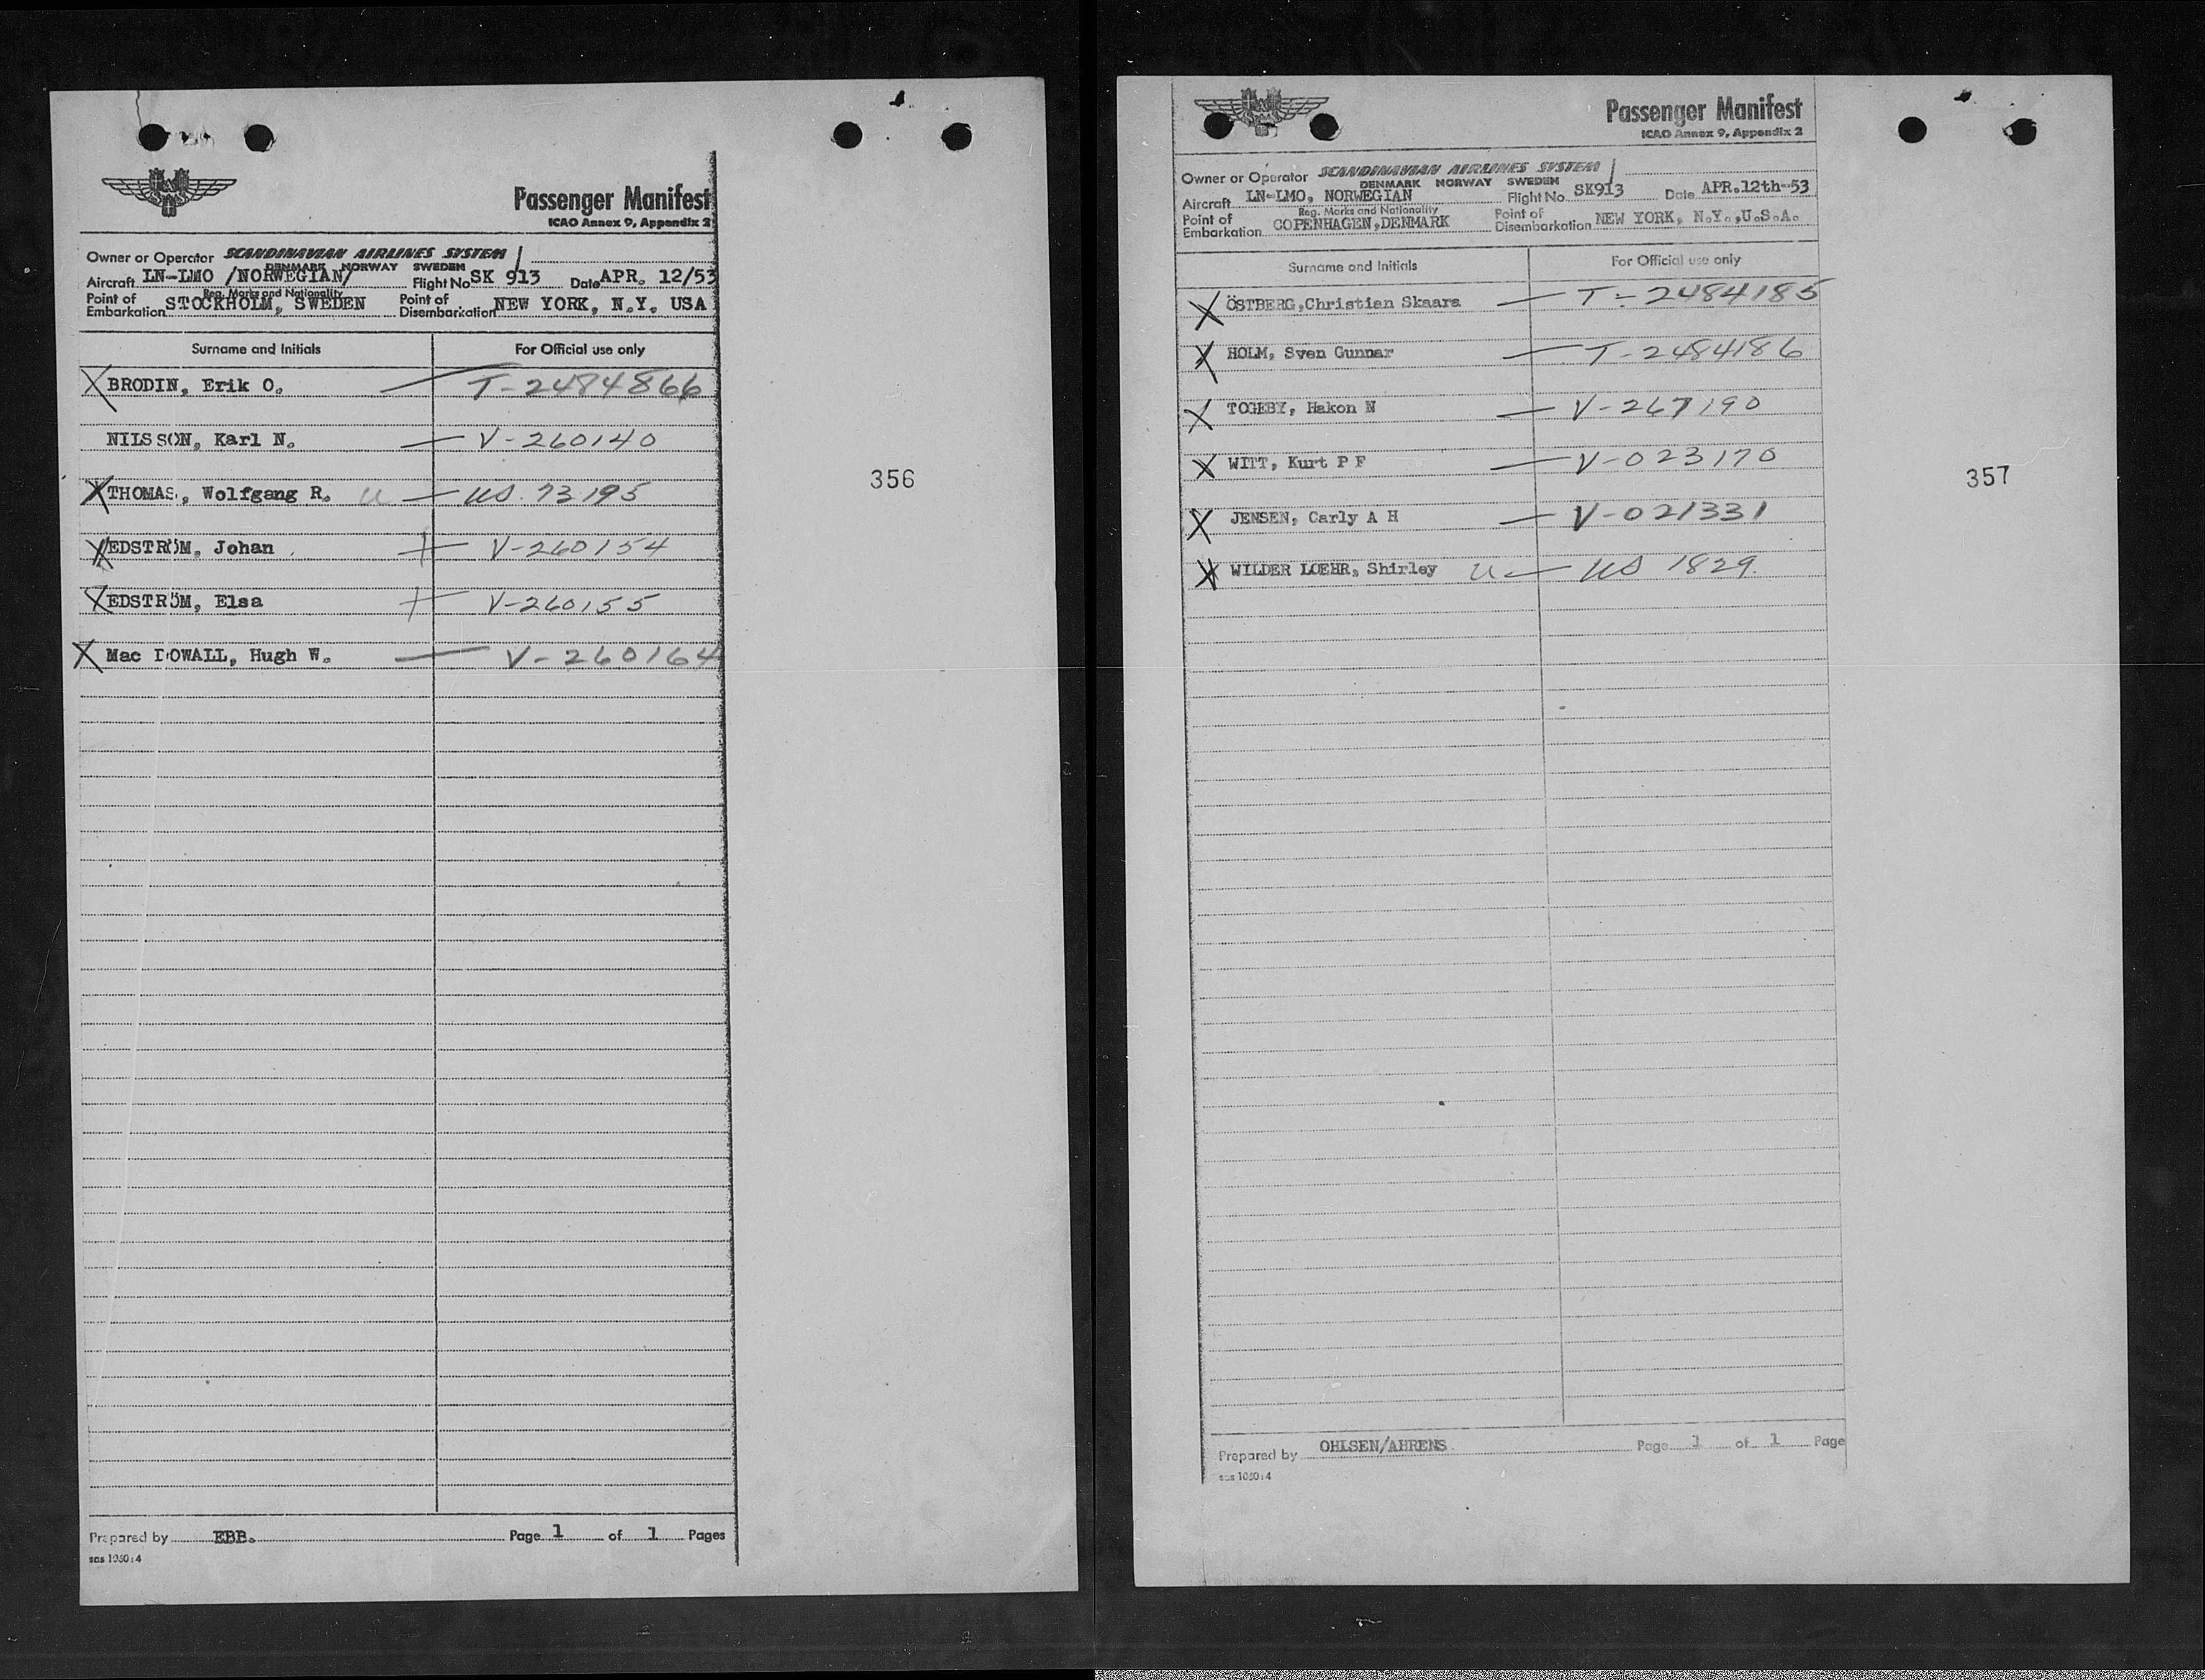 Passenger Manifest
ICAO Annex 9, Appendix 2
Owner or Operator SCANDINAVIAN AIRLINES SYSTEM
DENMARK NORWAY SWEDEN
Aircraft LN-LMO /NORWEGIAN/ Flight No SK 913 Date APR. 12/53
Reg. Marks and Nationality
Point of Embarkation STOCKHOLM, SWEDEN Point of Disembarkation NEW YORK, N.Y. USA
Surname and Initials For Official use only
X BRODIN, Erik O. — T-2484866
NILSSON, Karl N. — V-260140
X THOMAS, Wolfgang R. u — US. 73195
X EDSTRÖM, Johan V-260154
X EDSTRÖM, Elsa V-260155
X Mac DOWALL, Hugh W. — V-260164
356
Prepared by EBB. Page 1 of 1 Pages
sas 1050:4
Passenger Manifest
ICAO Annex 9, Appendix 2
Owner or Operator SCANDINAVIAN AIRLINES SYSTEM
DENMARK NORWAY SWEDEN
Aircraft LN-LMO, NORWEGIAN Flight No SK913 Date APR.12th-53
Reg. Marks and Nationality
Point of Embarkation COPENHAGEN,DENMARK Point of Disembarkation NEW YORK, N.Y.,U.S.A.
Surname and Initials For Official use only
X ÖSTBERG,Christian Skaara — T-2484185
X HOLM, Sven Gunnar — T-2484186
X TOGEBY, Hakon N — V-267190
X WITT, Kurt P F — V-023170
X JENSEN, Carly A H — V-021331
X WILDER LOEHR, Shirley u — US 1829.
357
Prepared by OHLSEN/AHRENS Page 1 of 1 Page
sas 1050:4